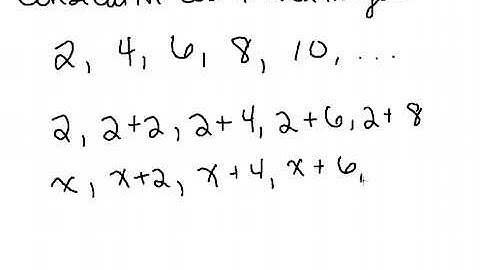 2, 4, 6, 8, 10, ...
2, 2+2, 2+4, 2+6, 2+8
x, x+2, x+4, x+6,